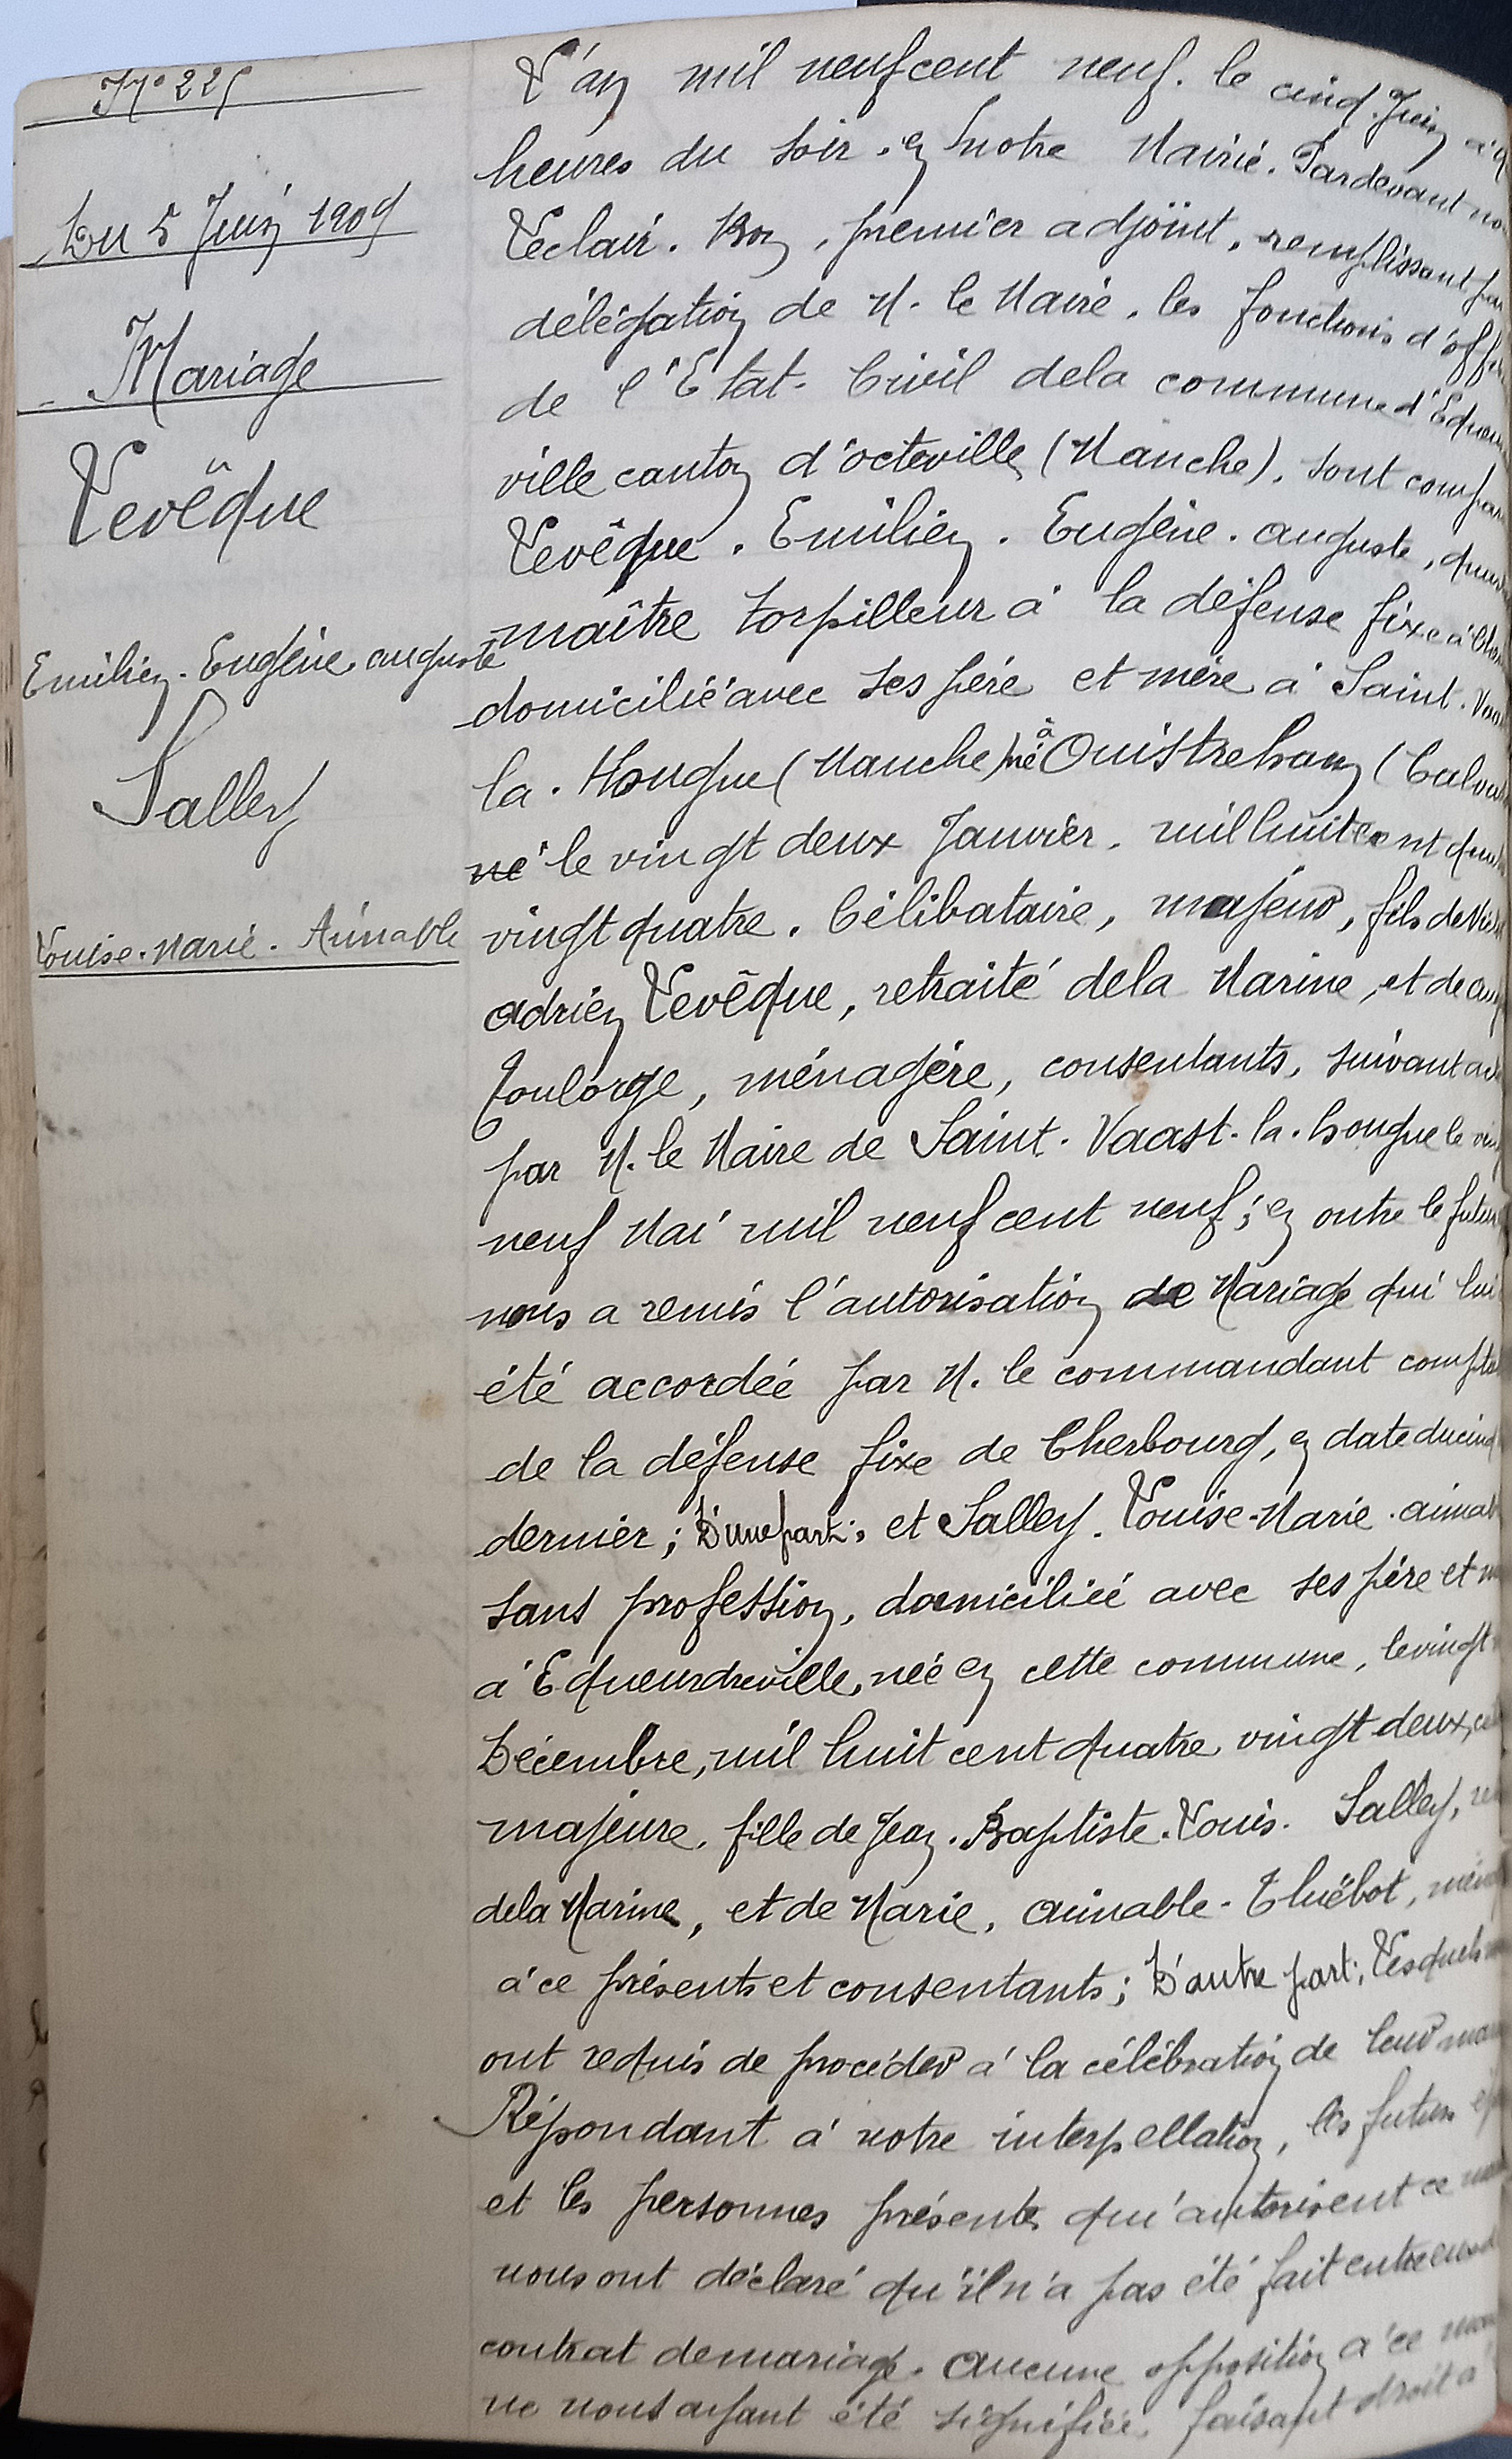 N° 225
Du 5 Juin 1909
Mariage
Levêque
Emilien. Eugène. auguste
Salley
Louise. Marie. Aimable
L'an mil neuf cent neuf. le cinq. Juin à
heures du soir. en notre Mairie. Pardevant
Leclair. Bon, premier adjoint, remplissant par
délégation de M. le Maire, les fonctions d'
de l'Etat. Civil dela commune d'
ville canton d'octeville (Manche), sont
Levêque. Emilien. Eugène. auguste,
maître torpilleur à la défense fixe à
domicilié avec ses père et mère à Saint.
la. Hougue (Manche) né à Ouistreham
né le vingt deux Janvier, mil huit cent
vingt quatre. Célibataire, majeur, fils de
adrien Levêque, retraité dela Marine, et de
Toulorge, ménagère, consentants, suivant
par M. le Maire de Saint. Vaast. la. hougue le
neuf Mai mil neuf cent neuf; en outre le futur
nous a remis l'autorisation de Mariage qui lui
été accordée par M. le commandant
de la défense fixe de Cherbourg, en date du cinq
dernier; D'une part; et Salley. Louise. Marie.
sans profession, domiciliée avec ses père et
à Equeurdreville, née en cette commune, le vingt
Décembre, mil huit cent quatre vingt deux,
majeure, fille de Jean. Baptiste. Louis. Salley,
dela Marine, et de Marie, aimable. Thiébot,
à ce présents et consentants; D'autre part; Lesquels
ont requis de procéder à la célébration de leur
Répondant à notre interpellation, les futurs
et les personnes présentes qui autorisent ce
nous ont déclaré qu'il n'a pas été fait entre eux
contrat de mariage. aucune opposition à ce
ne nous ayant été signifiée, faisant droit à